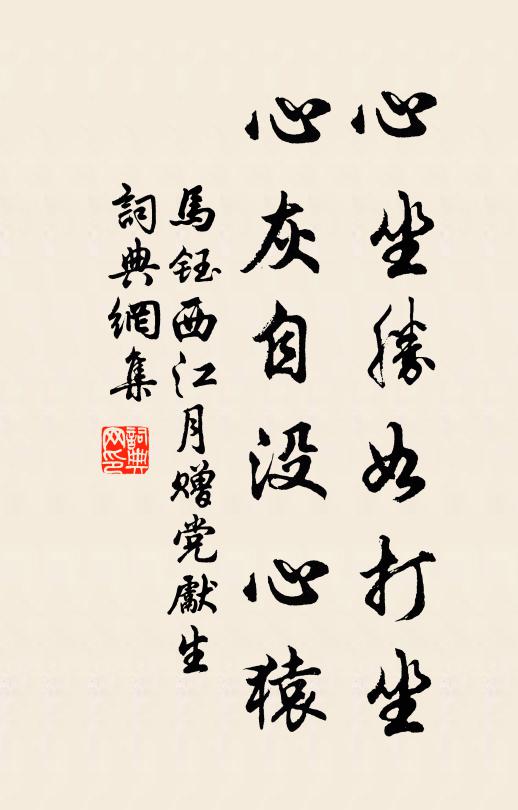 心坐勝如打坐
心灰自没心猿
馬鈺西江月赠党獻生
詞典網集
詞典网印